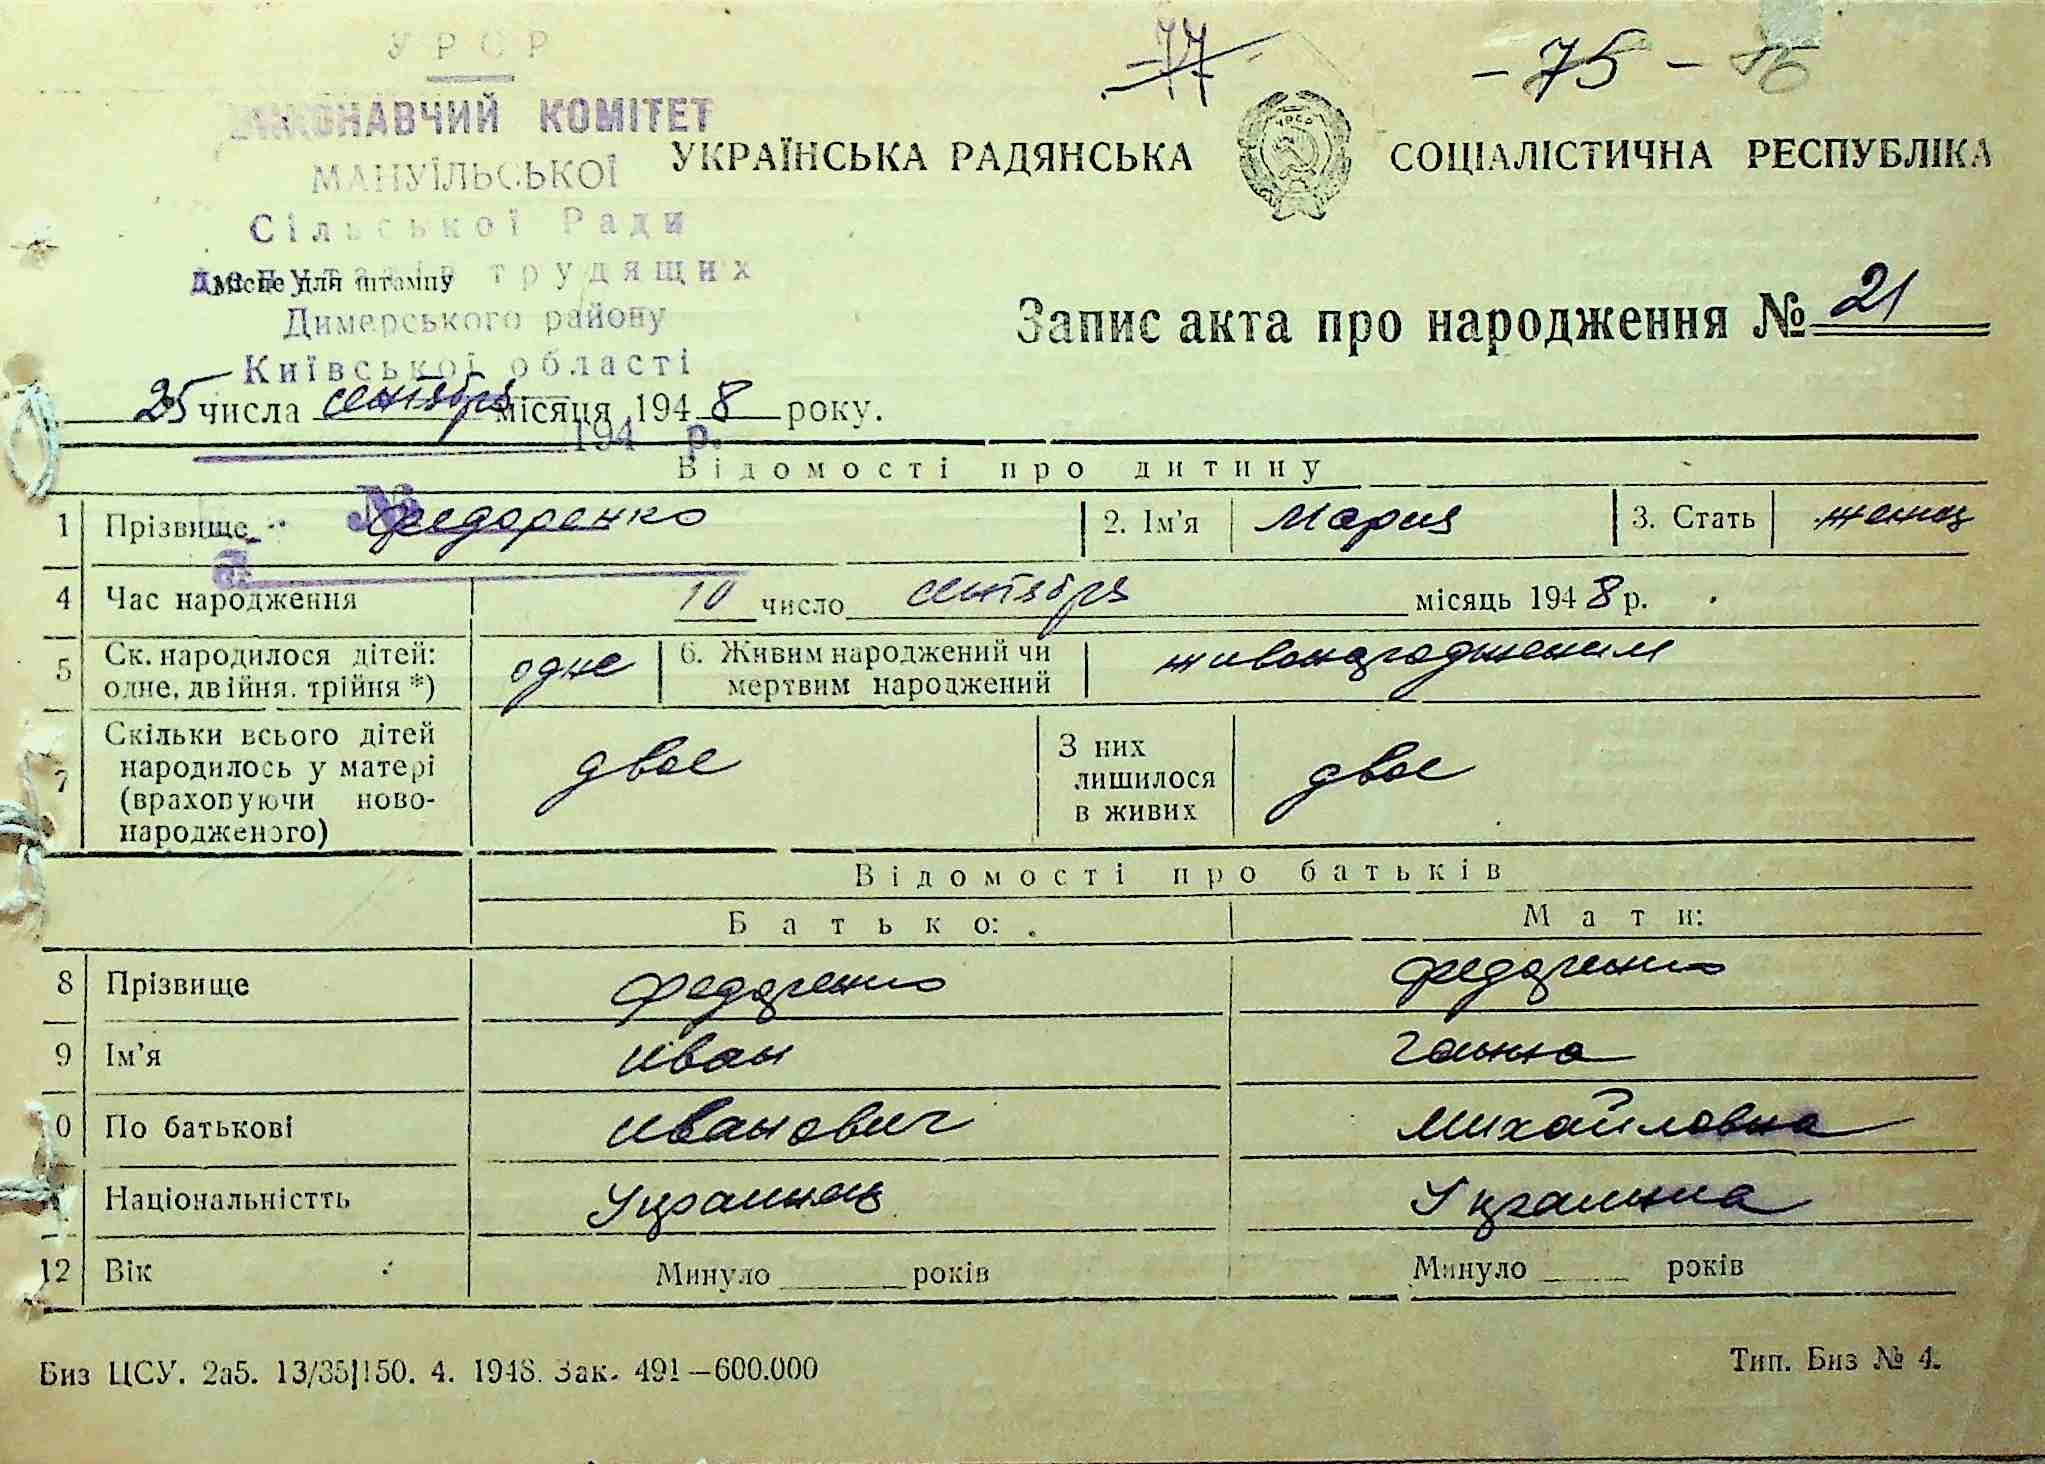 УРСР
ВИКОНАВЧИЙ КОМІТЕТ
МАНУЇЛЬСЬКОЇ
Сільської Ради
депутатів трудящих
Димерського району
Київської області
194 р.
№
77
- 75 - 76
УКРАЇНСЬКА РАДЯНСЬКА СОЦІАЛІСТИЧНА РЕСПУБЛІКА
Місце для штампу
Запис акта про народження № 21
25 числа сентября місяця 1948 року.
Відомості про дитину
1 Прізвище Федоренко 2. Ім'я Мария 3. Стать женщ
4 Час народження 10 число сентября місяць 1948 р.
5 Ск. народилося дітей: одне, двійня, трійня *) одне 6. Живим народжений чи мертвим народжений живонародженим
7 Скільки всього дітей народилось у матері (враховуючи ново-народженого) двое З них лишилося в живих двое
Відомості про батьків
Батько: Мати:
8 Прізвище Федоренко Федоренко
9 Ім'я Иван Ганна
0 По батькові Иванович Михайловна
Національністть Украинец Украинка
12 Вік Минуло років Минуло років
Биз ЦСУ. 2а5. 13/35|150. 4. 1948. Зак. 491—600.000
Тип. Биз № 4.